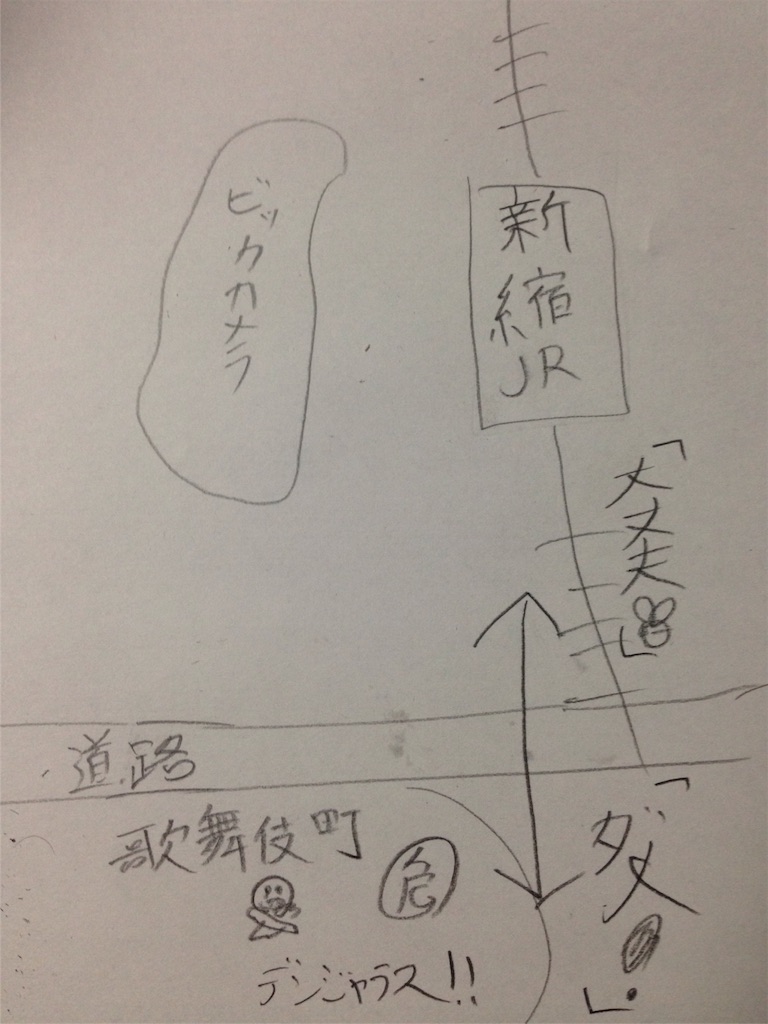 ビックカメラ
新縮
JR
「大丈夫」
道路
歌舞伎町
危
デンジャラス!!
「ダメ」